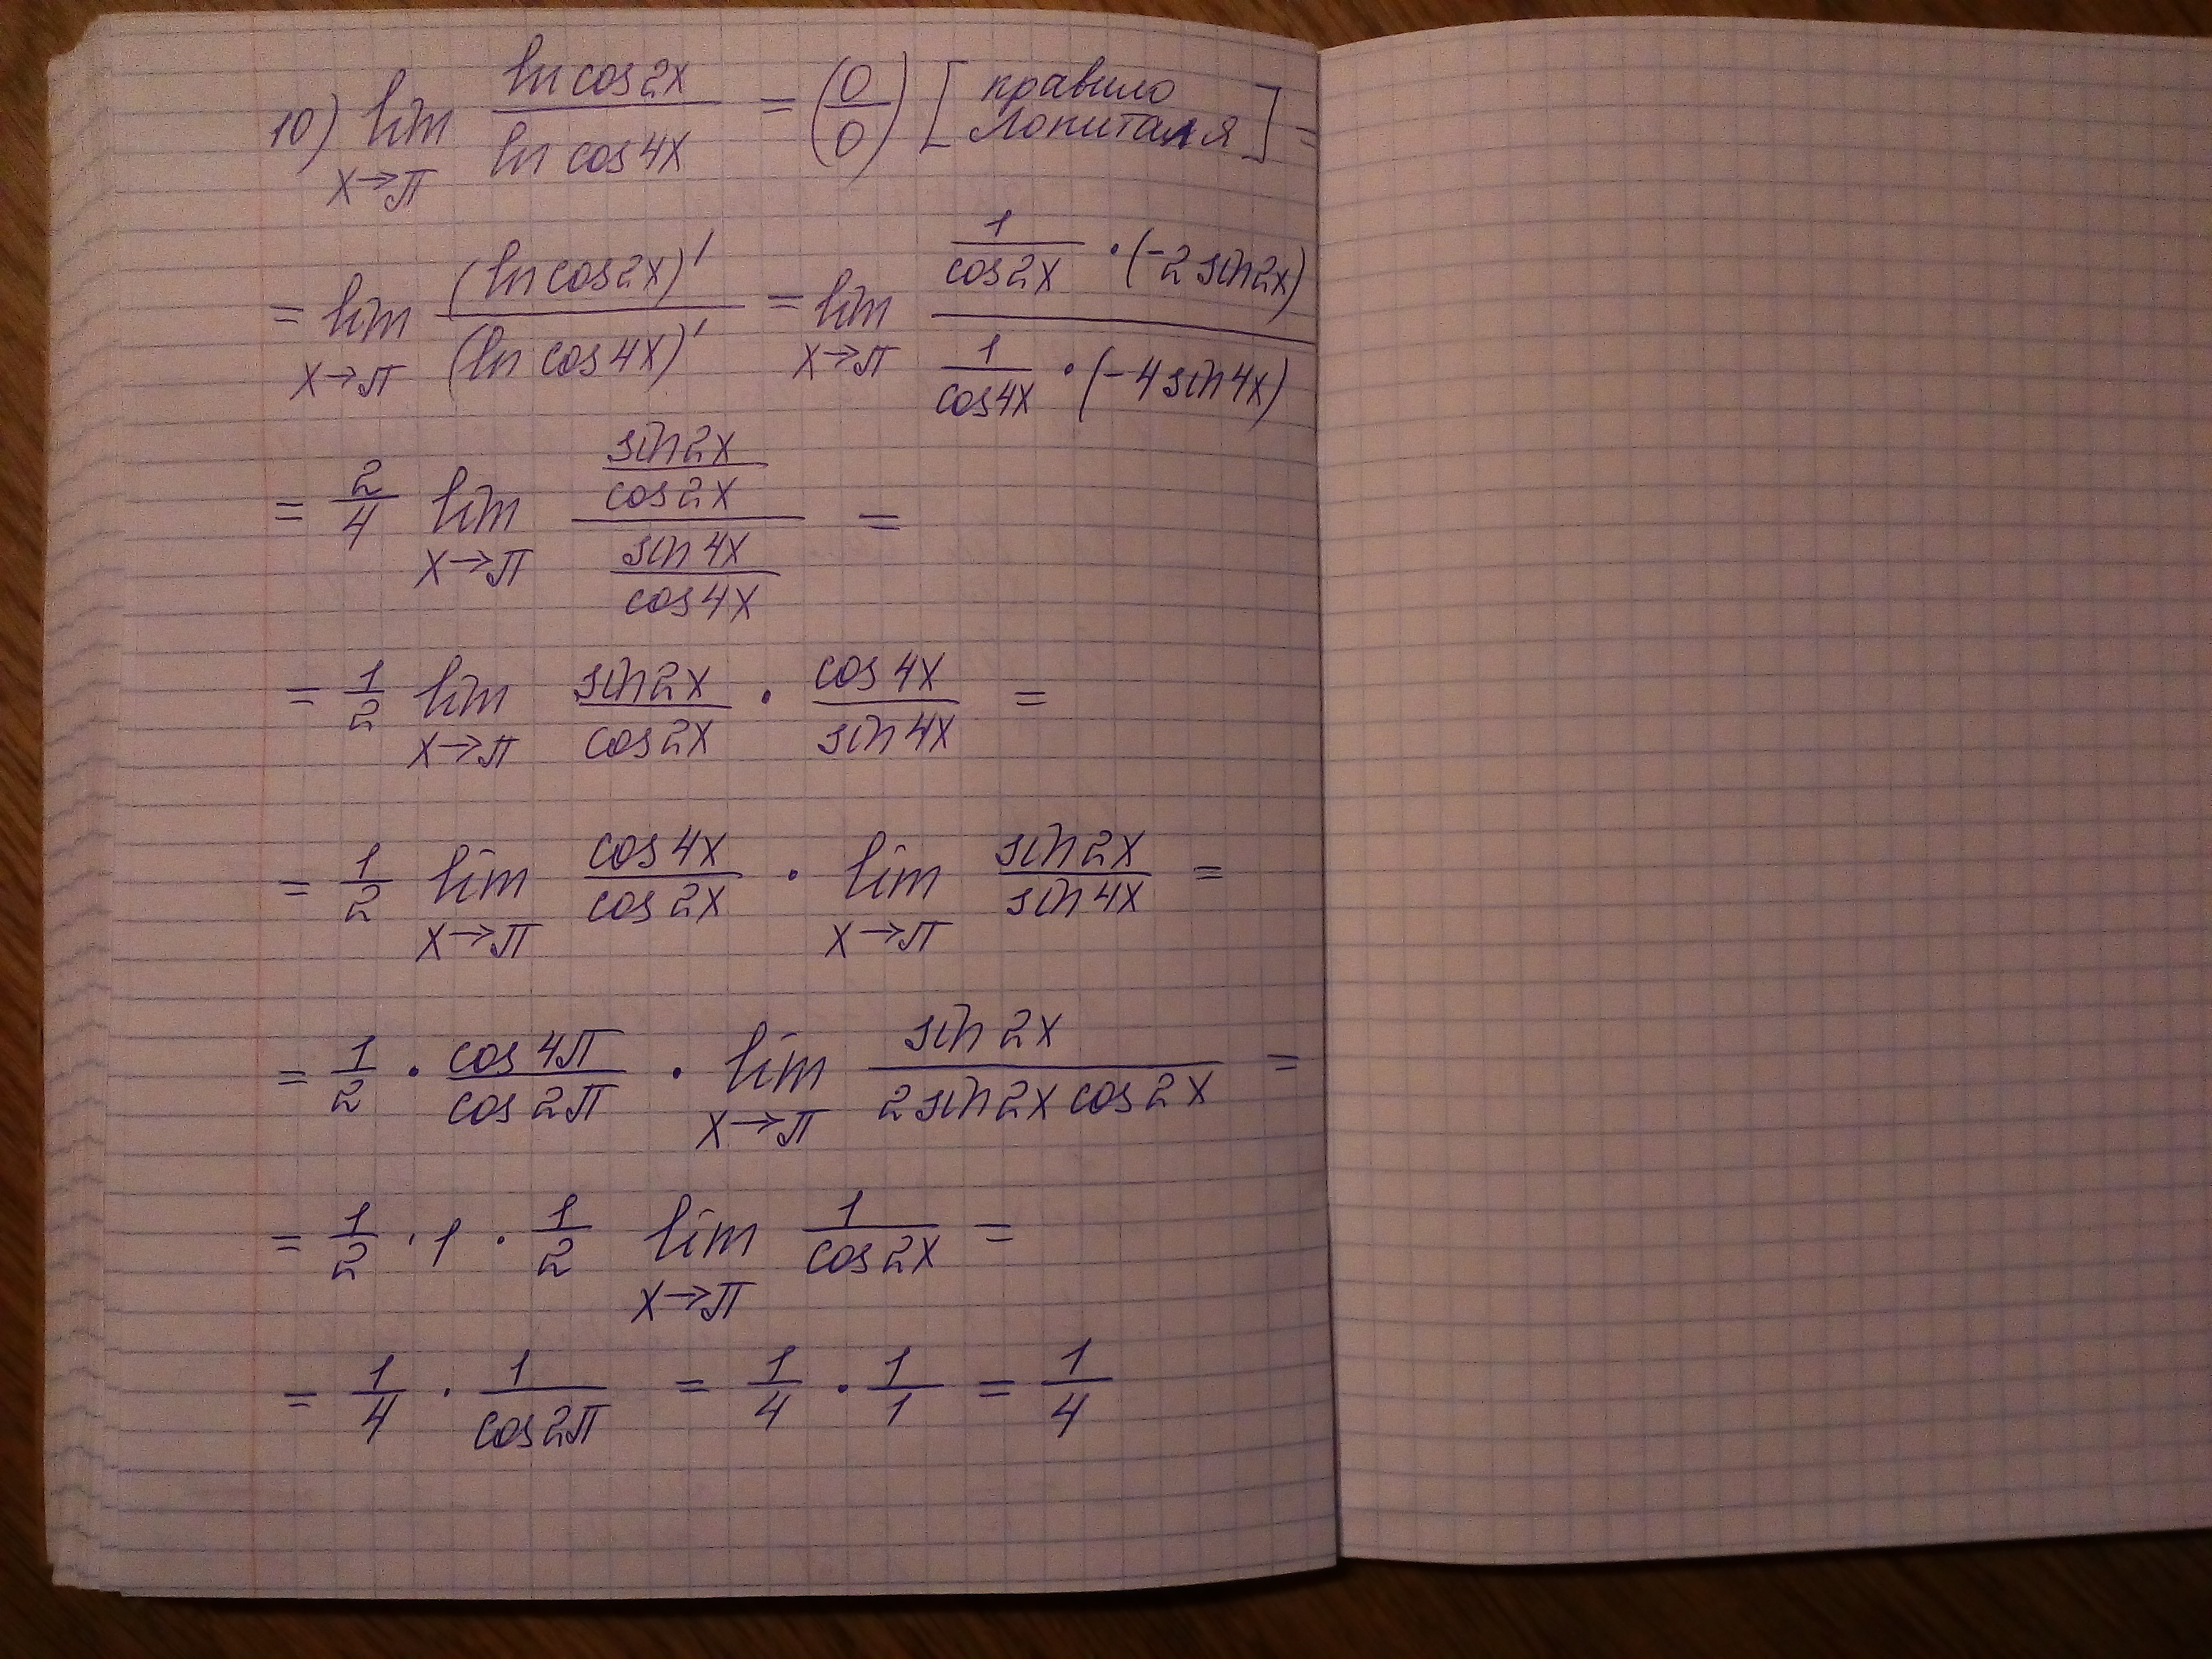 10) lim x→π (ln cos2x)/(ln cos4x) = (0/0) [правило Лопиталя] =
= lim x→π (ln cos2x)'/(ln cos4x)' = lim x→π (1/cos2x · (-2sin2x))/(1/cos4x · (-4sin4x))
= 2/4 lim x→π (sin2x/cos2x)/(sin4x/cos4x) =
= 1/2 lim x→π sin2x/cos2x · cos4x/sin4x =
= 1/2 lim x→π cos4x/cos2x · lim x→π sin2x/sin4x =
= 1/2 · cos4π/cos2π · lim x→π sin2x/(2sin2x cos2x) =
= 1/2 · 1 · 1/2 lim x→π 1/cos2x =
= 1/4 · 1/cos2π = 1/4 · 1/1 = 1/4